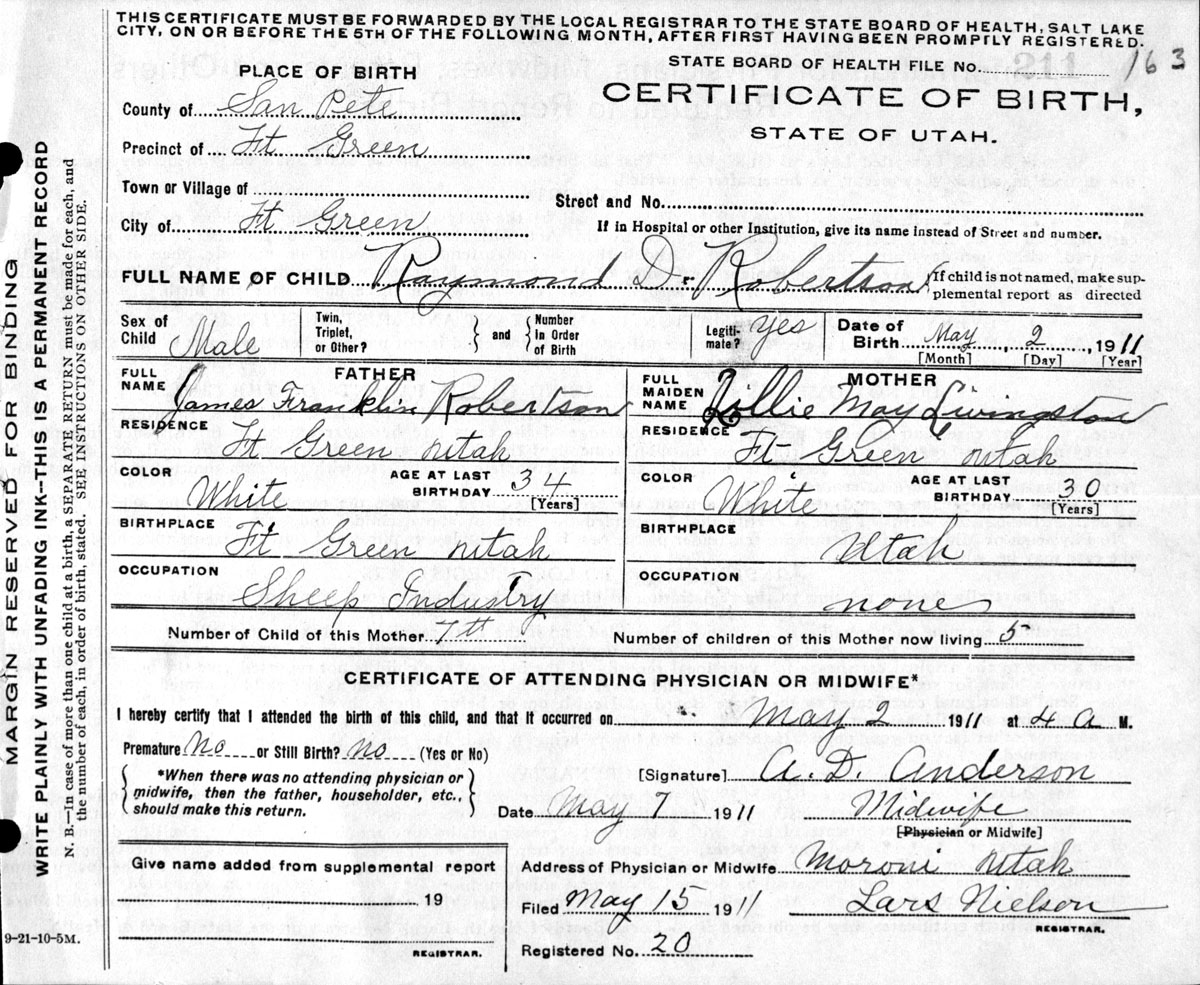 THIS CERTIFICATE MUST BE FORWARDED BY THE LOCAL REGISTRAR TO THE STATE BOARD OF HEALTH, SALT LAKE
CITY, ON OR BEFORE THE 5TH OF THE FOLLOWING MONTH, AFTER FIRST HAVING BEEN PROMPTLY REGISTERED.
STATE BOARD OF HEALTH FILE No. 211 163
PLACE OF BIRTH
CERTIFICATE OF BIRTH,
STATE OF UTAH.
County of San Pete
Precinct of Ft Green
Town or Village of
Street and No.
City of Ft Green
If in Hospital or other Institution, give its name instead of Street and number.
FULL NAME OF CHILD Raymond D. Robertson
If child is not named, make sup-
plemental report as directed
Sex of Child Male
Twin, Triplet, or Other?
and
Number In Order of Birth
Legiti-mate? yes
Date of Birth May 2, 1911
[Month] [Day] [Year]
FATHER
FULL NAME James Franklin Robertson
RESIDENCE Ft Green Utah
COLOR White
AGE AT LAST BIRTHDAY 34 [Years]
BIRTHPLACE Ft Green Utah
OCCUPATION Sheep Industry
MOTHER
FULL MAIDEN NAME Lillie May Livingston
RESIDENCE Ft Green Utah
COLOR White
AGE AT LAST BIRTHDAY 30 [Years]
BIRTHPLACE Utah
OCCUPATION none
Number of Child of this Mother 7th
Number of children of this Mother now living 5
CERTIFICATE OF ATTENDING PHYSICIAN OR MIDWIFE*
I hereby certify that I attended the birth of this child, and that it occurred on May 2 1911 at 4 a M.
Premature no or Still Birth? no (Yes or No)
*When there was no attending physician or
midwife, then the father, householder, etc.,
should make this return.
[Signature] A. D. Anderson
Date May 7 1911
Midwife
[Physician or Midwife]
Give name added from supplemental report
19
REGISTRAR.
Address of Physician or Midwife Moroni Utah
Filed May 15 1911
Lars Nielson
REGISTRAR.
Registered No. 20
9-21-10-5M.
MARGIN RESERVED FOR BINDING
WRITE PLAINLY WITH UNFADING INK—THIS IS A PERMANENT RECORD
N. B.—In case of more than one child at a birth, a SEPARATE RETURN must be made for each, and
the number of each, in order of birth, stated. SEE INSTRUCTIONS ON OTHER SIDE.